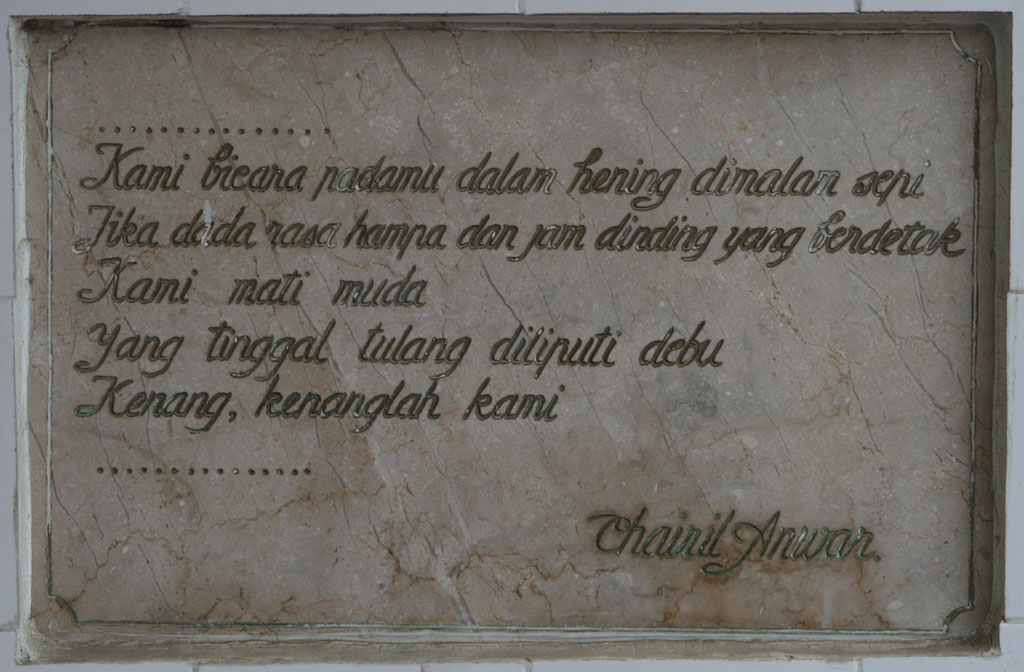 ...............
Kami bicara padamu dalam hening dimalam sepi
Jika dada rasa hampa dan jam dinding yang berdetak
Kami mati muda
Yang tinggal tulang diliputi debu
Kenang, kenanglah kami
..............
Chairil Anwar.